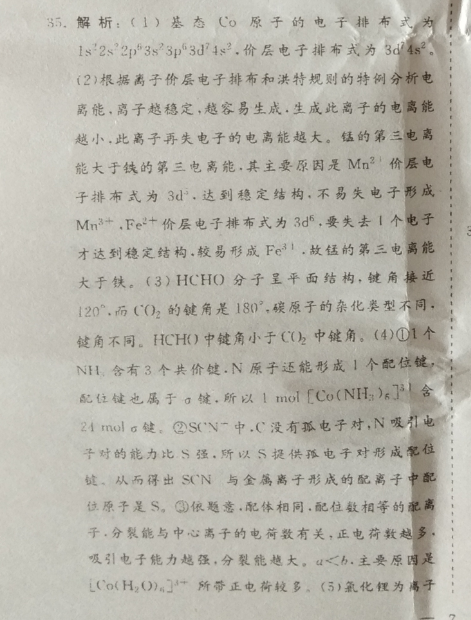 35. 解析:(1)基态 Co 原子的电子排布式为
1s²2s²2p⁶3s²3p⁶3d⁷4s²,价层电子排布式为 3d⁷4s²。
(2)根据离子价层电子排布和洪特规则的特例分析电
离能,离子越稳定,越容易生成,生成此离子的电离能
越小,此离子再失电子的电离能越大。锰的第三电离
能大于铁的第三电离能,其主要原因是 Mn²⁺ 价层电
子排布式为 3d⁵,达到稳定结构,不易失电子形成
Mn³⁺,Fe²⁺价层电子排布式为 3d⁶,要失去 1 个电子
才达到稳定结构,较易形成 Fe³⁺,故锰的第三电离能
大于铁。(3)HCHO 分子呈平面结构,键角接近
120°,而 CO₂ 的键角是 180°,碳原子的杂化类型不同,
键角不同。HCHO 中键角小于 CO₂ 中键角。(4)①1 个
NH₃ 含有 3 个共价键,N 原子还能形成 1 个配位键,
配位键也属于 σ 键,所以 1 mol [Co(NH₃)₆]³⁺ 含
24 mol σ 键。②SCN⁻ 中,C 没有孤电子对,N 吸引电
子对的能力比 S 强,所以 S 提供孤电子对形成配位
键。从而得出 SCN⁻ 与金属离子形成的配离子中配
位原子是 S。③依题意,配体相同,配位数相等的配离
子,分裂能与中心离子的电荷数有关,正电荷数越多,
吸引电子能力越强,分裂能越大。a<b,主要原因是
[Co(H₂O)₆]³⁺ 所带正电荷较多。(5)氧化锂为离子